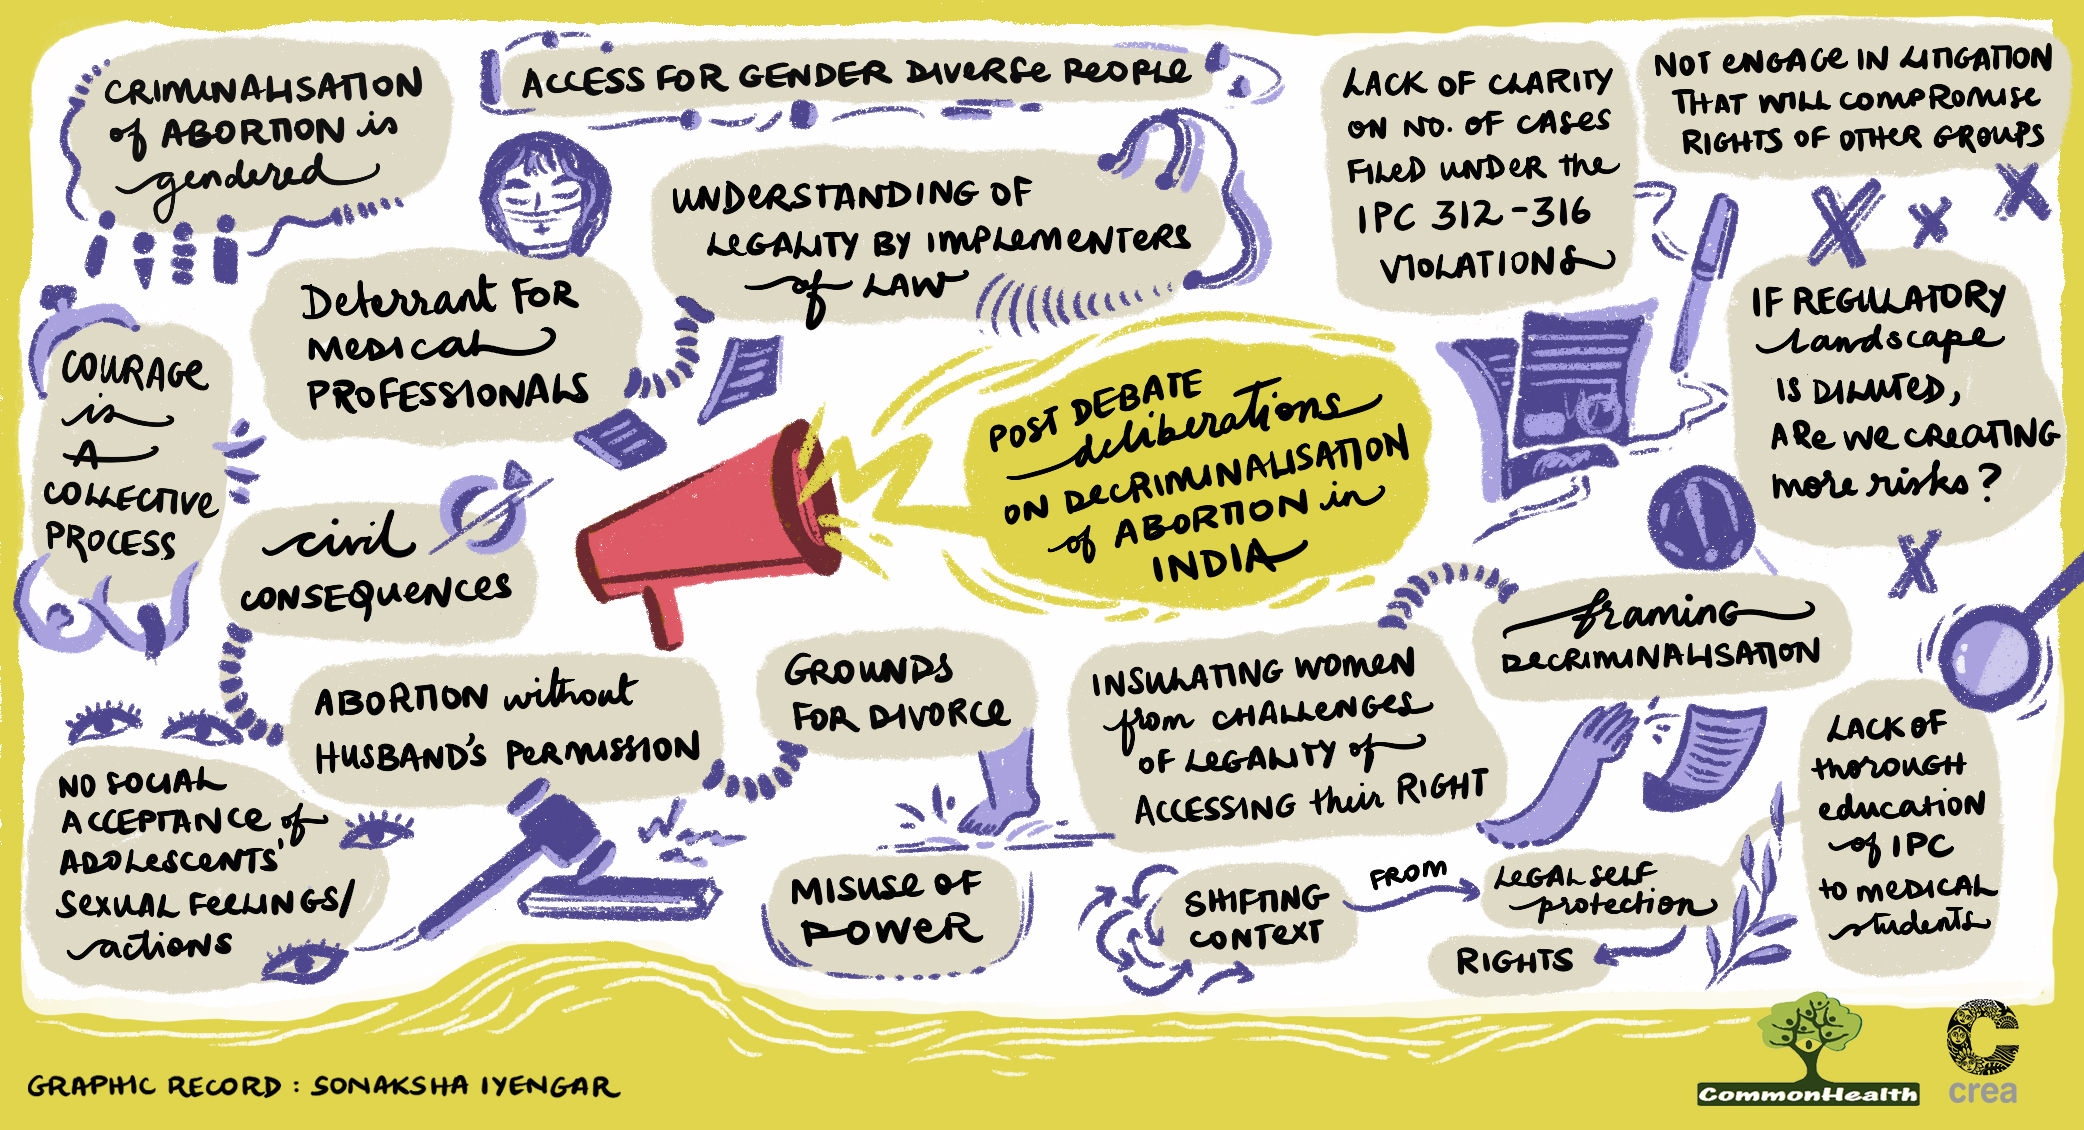 CRIMINALISATION
of ABORTION is
gendered
ACCESS FOR GENDER DIVERSE PEOPLE
UNDERSTANDING OF
LEGALITY BY IMPLEMENTERS
of LAW
LACK OF CLARITY
ON NO. OF CASES
FILED UNDER the
IPC 312-316
VIOLATIONS
NOT ENGAGE IN LITIGATION
THAT WILL COMPROMISE
RIGHTS OF OTHER GROUPS
Deterrant FOR
MEDICAL
PROFESSIONALS
IF REGULATORY
Landscape
IS DILUTED,
ARE WE CREATING
more risks?
COURAGE
is
A
COLLECTIVE
PROCESS
POST DEBATE
deliberations
ON DECRIMINALISATION
of ABORTION in
INDIA
civil
CONSEQUENCES
framing
DECRIMINALISATION
ABORTION without
HUSBAND'S PERMISSION
GROUNDS
FOR DIVORCE
INSULATING WOMEN
from CHALLENGES
OF LEGALITY of
ACCESSING their RIGHT
LACK OF
thorough
education
of IPC
to MEDICAL
students
NO SOCIAL
ACCEPTANCE of
ADOLESCENTS'
SEXUAL FEELINGS/
actions
MISUSE OF
POWER
SHIFTING
CONTEXT
FROM
LEGAL SELF
protection
RIGHTS
GRAPHIC RECORD : SONAKSHA IYENGAR
CommonHealth
crea